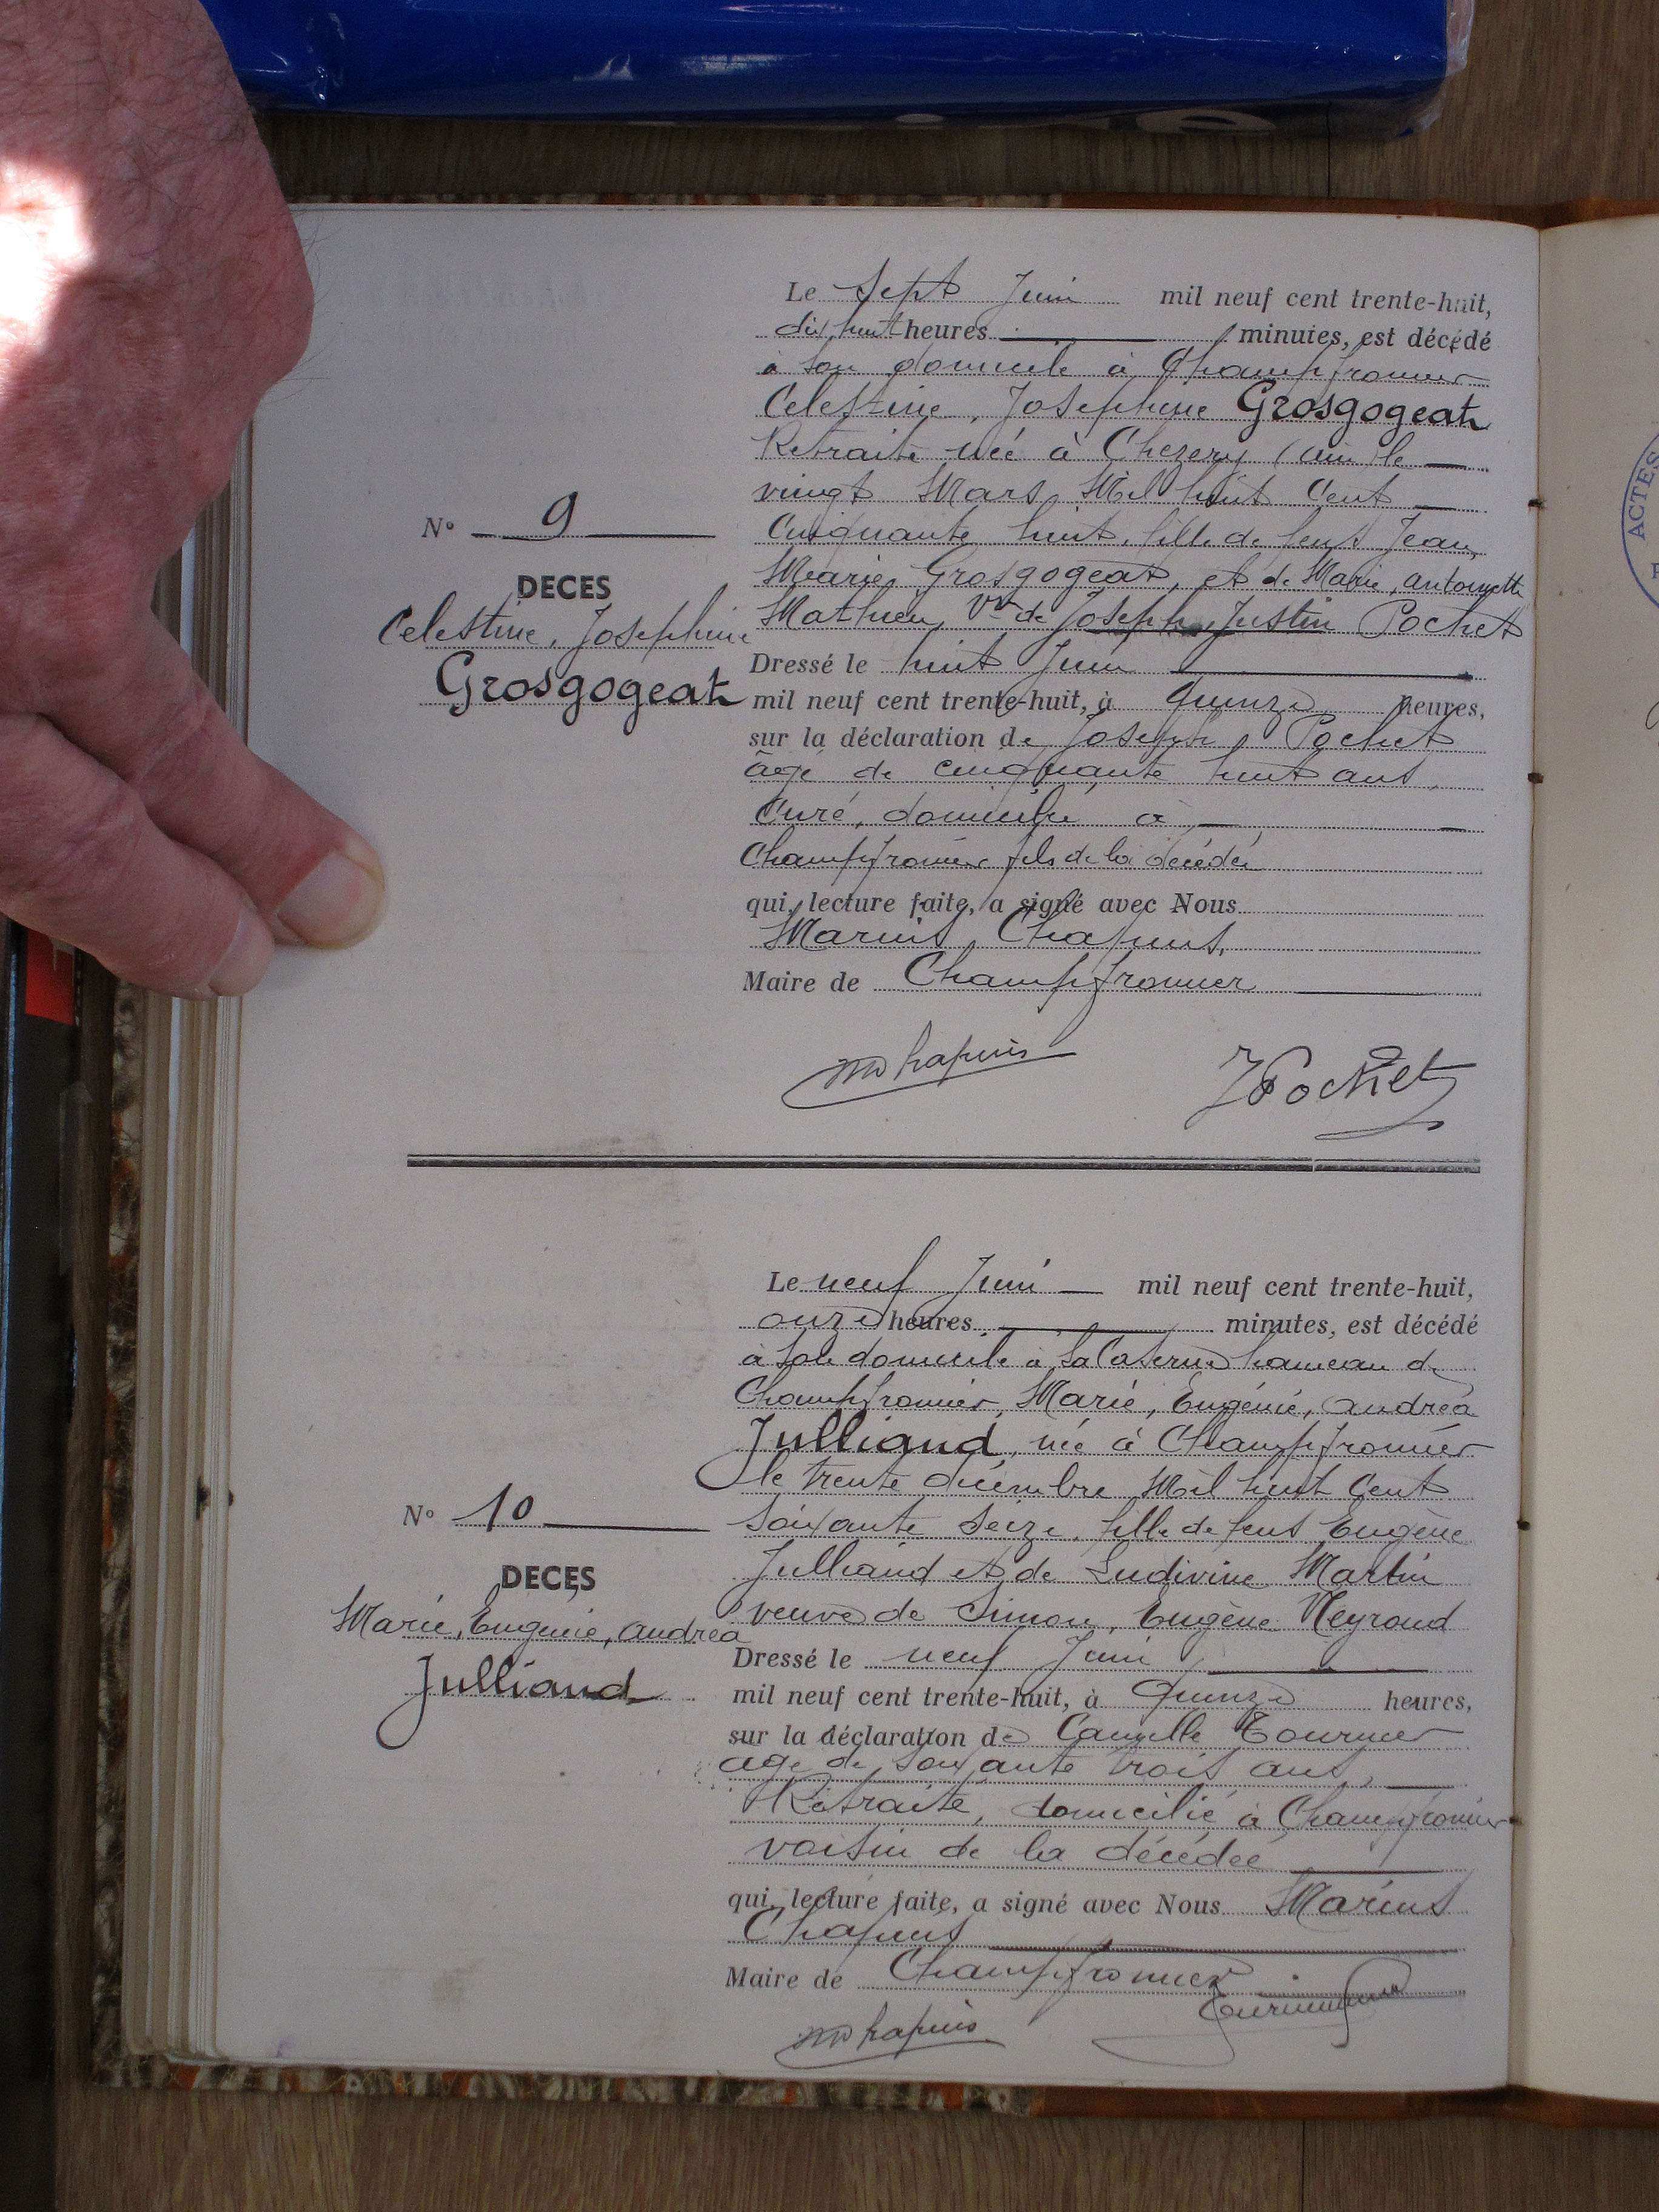 Le Sept Juin mil neuf cent trente-huit,
dix huit heures minutes, est décédé
à son domicile à Champfromier
Celestine, Josephine Grosgogeat
Retraité née à Chezery (Ain) le
vingt Mars Mil huit Cent
Cinquante huit, fille de feus Jean,
Marie, Grosgogeat, et de Marie, antoinette
Mathieu, Vve de Joseph, Justin Pochet
Dressé le huit Juin
mil neuf cent trente-huit, à quinze heures,
sur la déclaration de Joseph, Pochet
âgé de cinquante huit ans,
Curé, domicilié à
Champfromier fils de la décédée
qui, lecture faite, a signé avec Nous
Marius, Chapuis,
Maire de Champfromier
N° 9
DECES
Celestine, Josephine
Grosgogeat
M Chapuis
J Pochet
Le neuf Juin mil neuf cent trente-huit,
onze heures minutes, est décédé
à son domicile à la Caserne hameau de
Champfromier, Marie, Eugénie, andréa
Julliand, née à Champfromier
le trente décembre Mil huit Cent
soixante seize, fille de feus Eugène
Julliand et de Ludivine Martin
veuve de Simon, Eugène Neyroud
Dressé le neuf Juin
mil neuf cent trente-huit, à quinze heures,
sur la déclaration de Camille Tournier
agé de soixante trois ans,
Retraité, domicilié à Champfromier
voisin de la décédée
qui, lecture faite, a signé avec Nous Marius
Chapuis
Maire de Champfromier
N° 10
DECES
Marie, Eugénie, andréa
Julliand
M Chapuis
ACTES